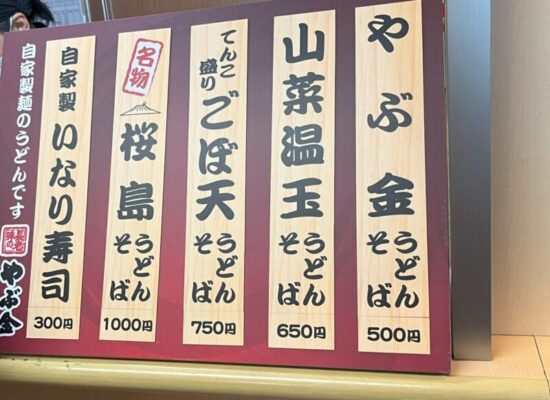 やぶ金
うどん
そば
500円
山菜温玉
うどん
そば
650円
てんこ
盛り
ごぼ天
うどん
そば
750円
名物
桜島
うどん
そば
1000円
自家製
いなり寿司
300円
自家製麺のうどんです
やぶ金